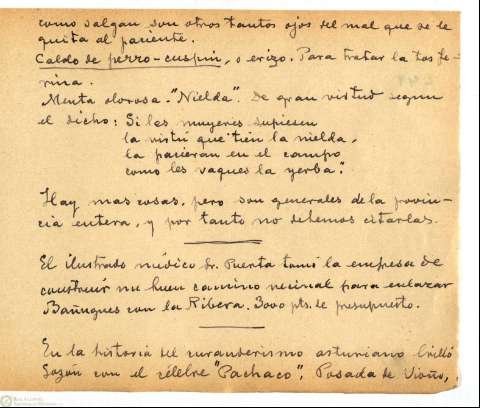 como salgan son otros tantos ojos del mal que se le
quita al paciente.
Caldo de perro-cuspin, o erizo. Para tratar la tos fe-
rina.
Menta olorosa-"Nielda". De gran virtud segun
el dicho: Si les muyeres supiesen
la virtú que tien la nielda,
la pacieran en el campo
como les vaques la yerba".
Hay mas cosas, pero son generales de la provin-
cia entera, y por tanto no debemos citarlas.
El ilustrado médico Dr. Puerta tomó la empresa de
construir un buen camino vecinal para enlazar
Bañugues con la Ribera. 3000 pts. de presupuesto.
En la historia del curanderismo asturiano brilló
Gozón con el célebre "Pachaco", Posada de Vioño,